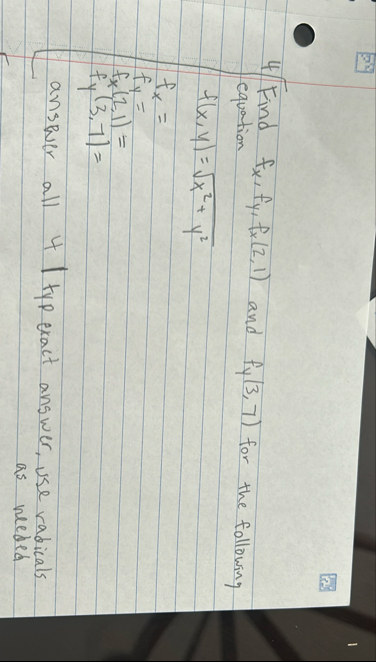 4 Find fx, fy, fx(2,1) and fy(3,7) for the following
equation
f(x,y) = √x² + y²
fx =
fy =
fx(2,1) =
fy(3,7) =
answer all 4 | typ exact answer, use radicals
as needed